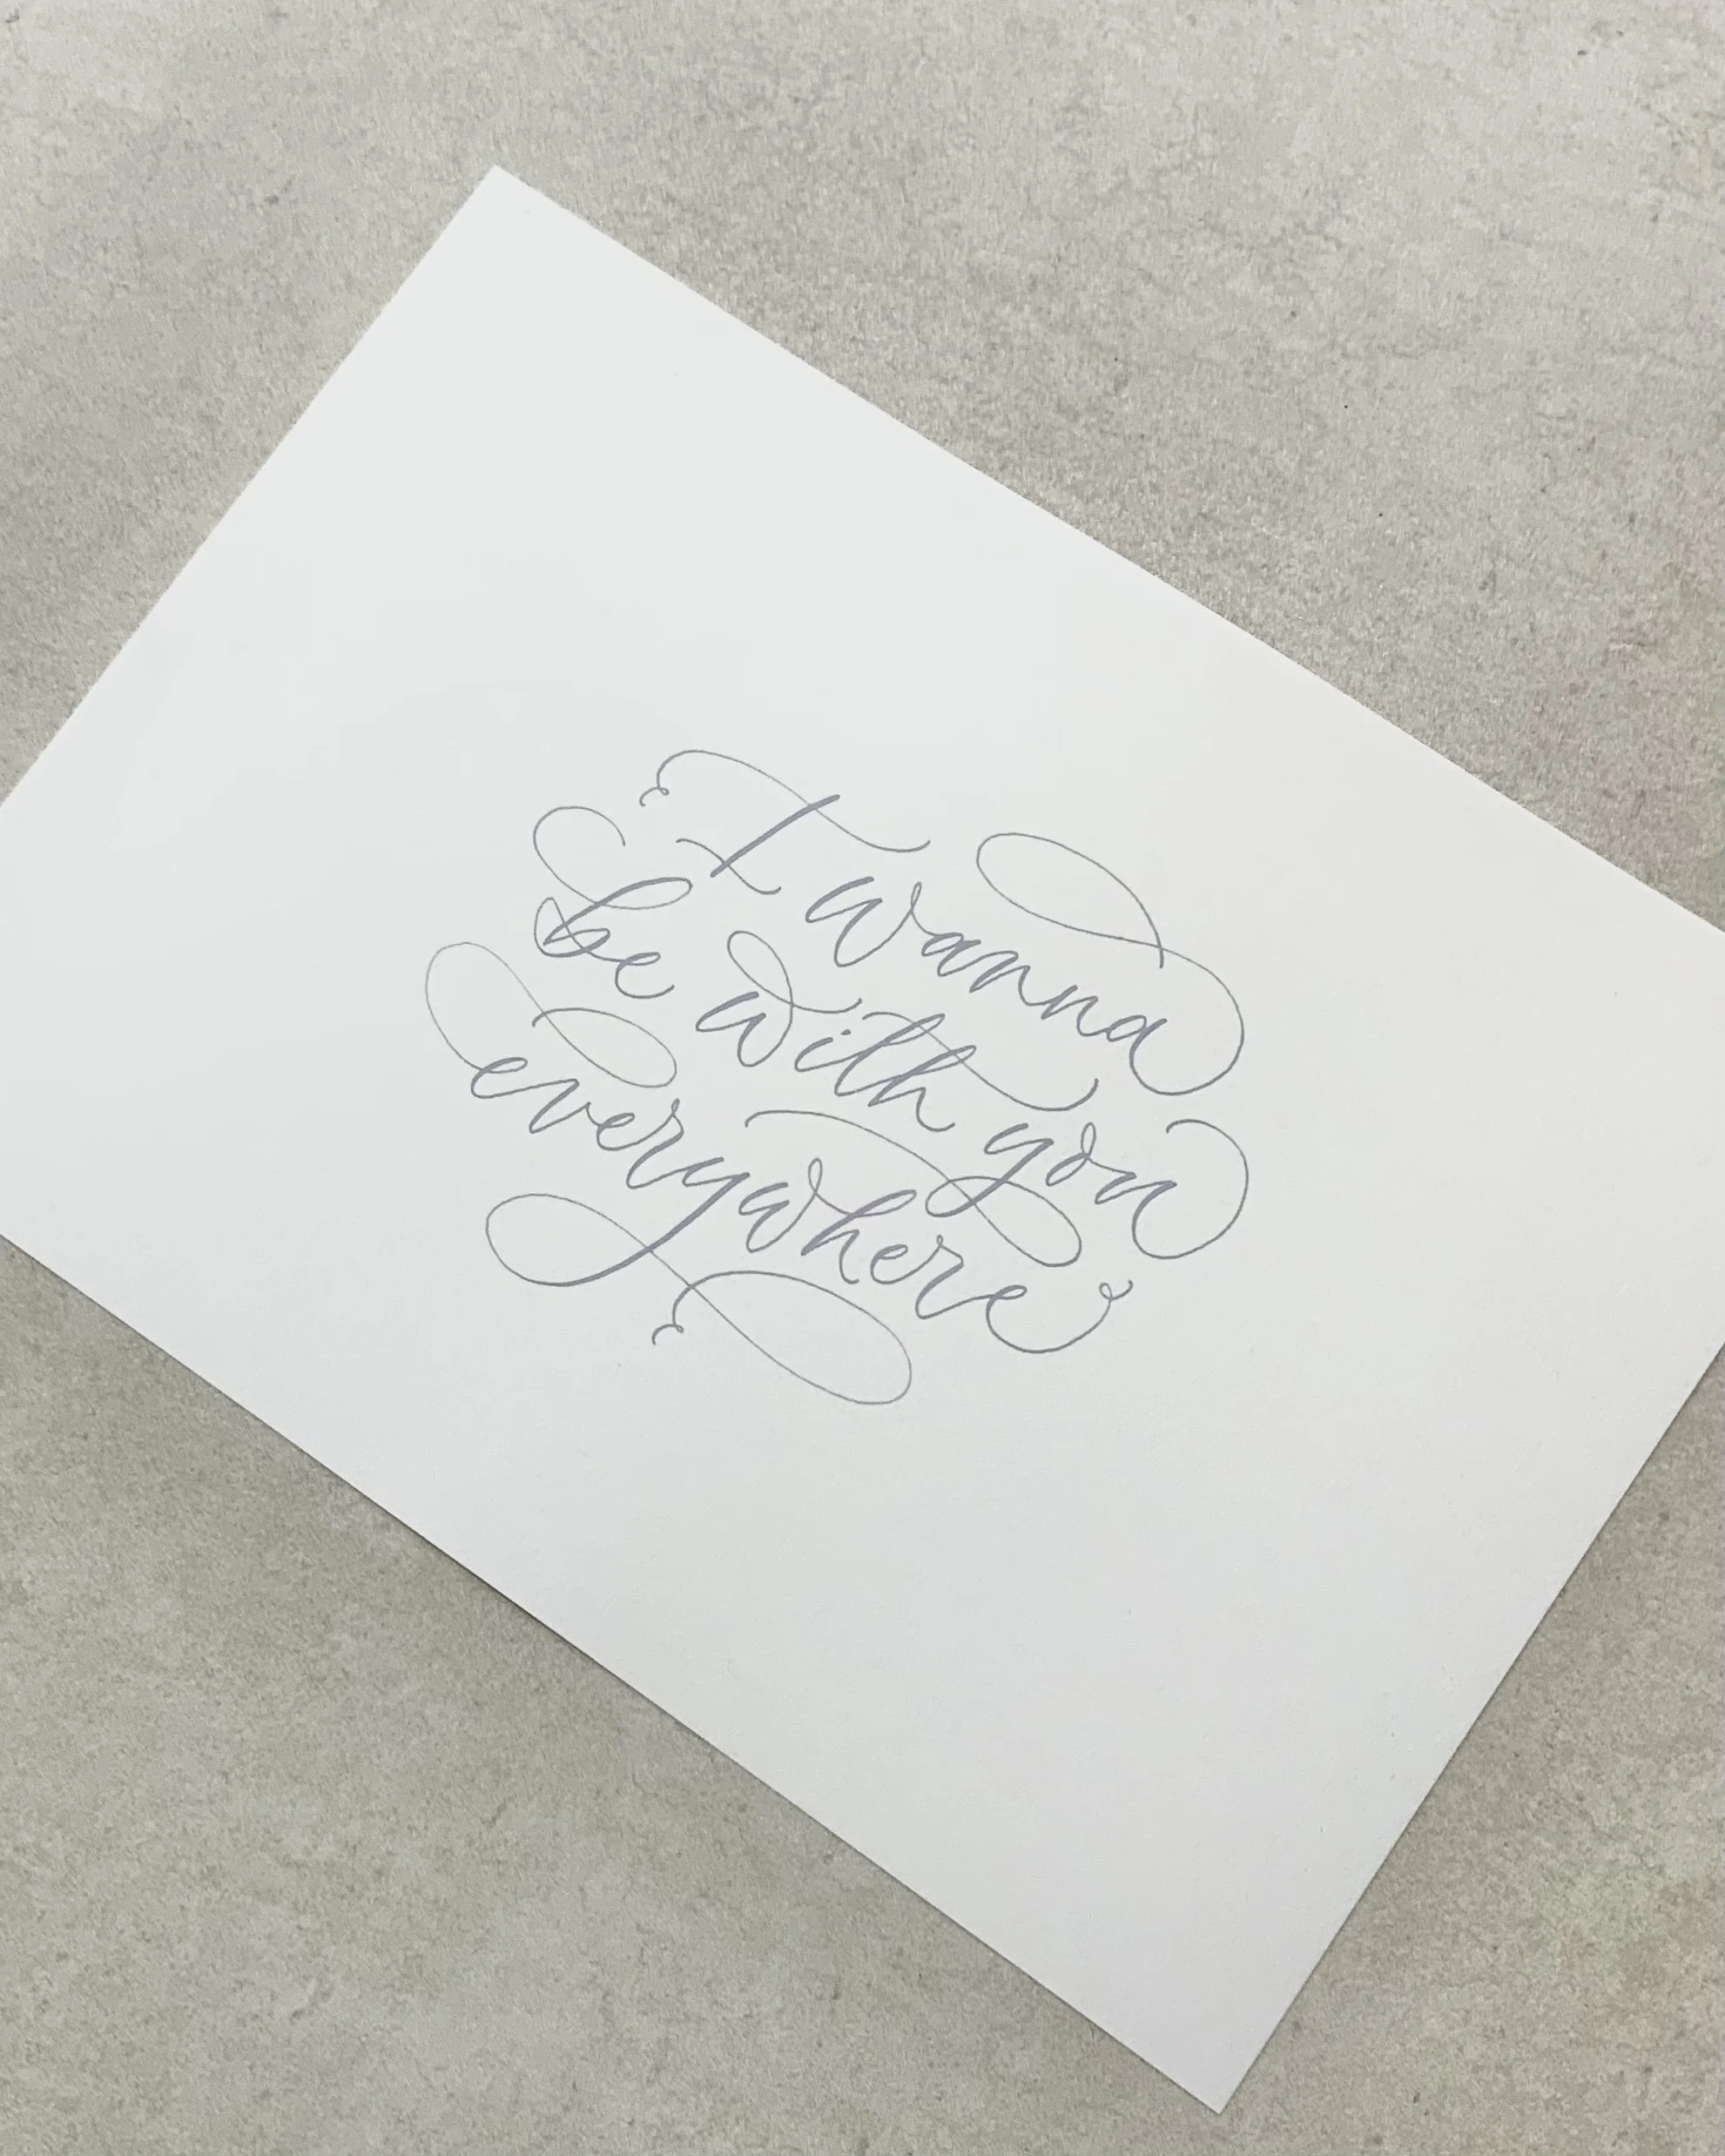 I wanna
be with you
everywhere